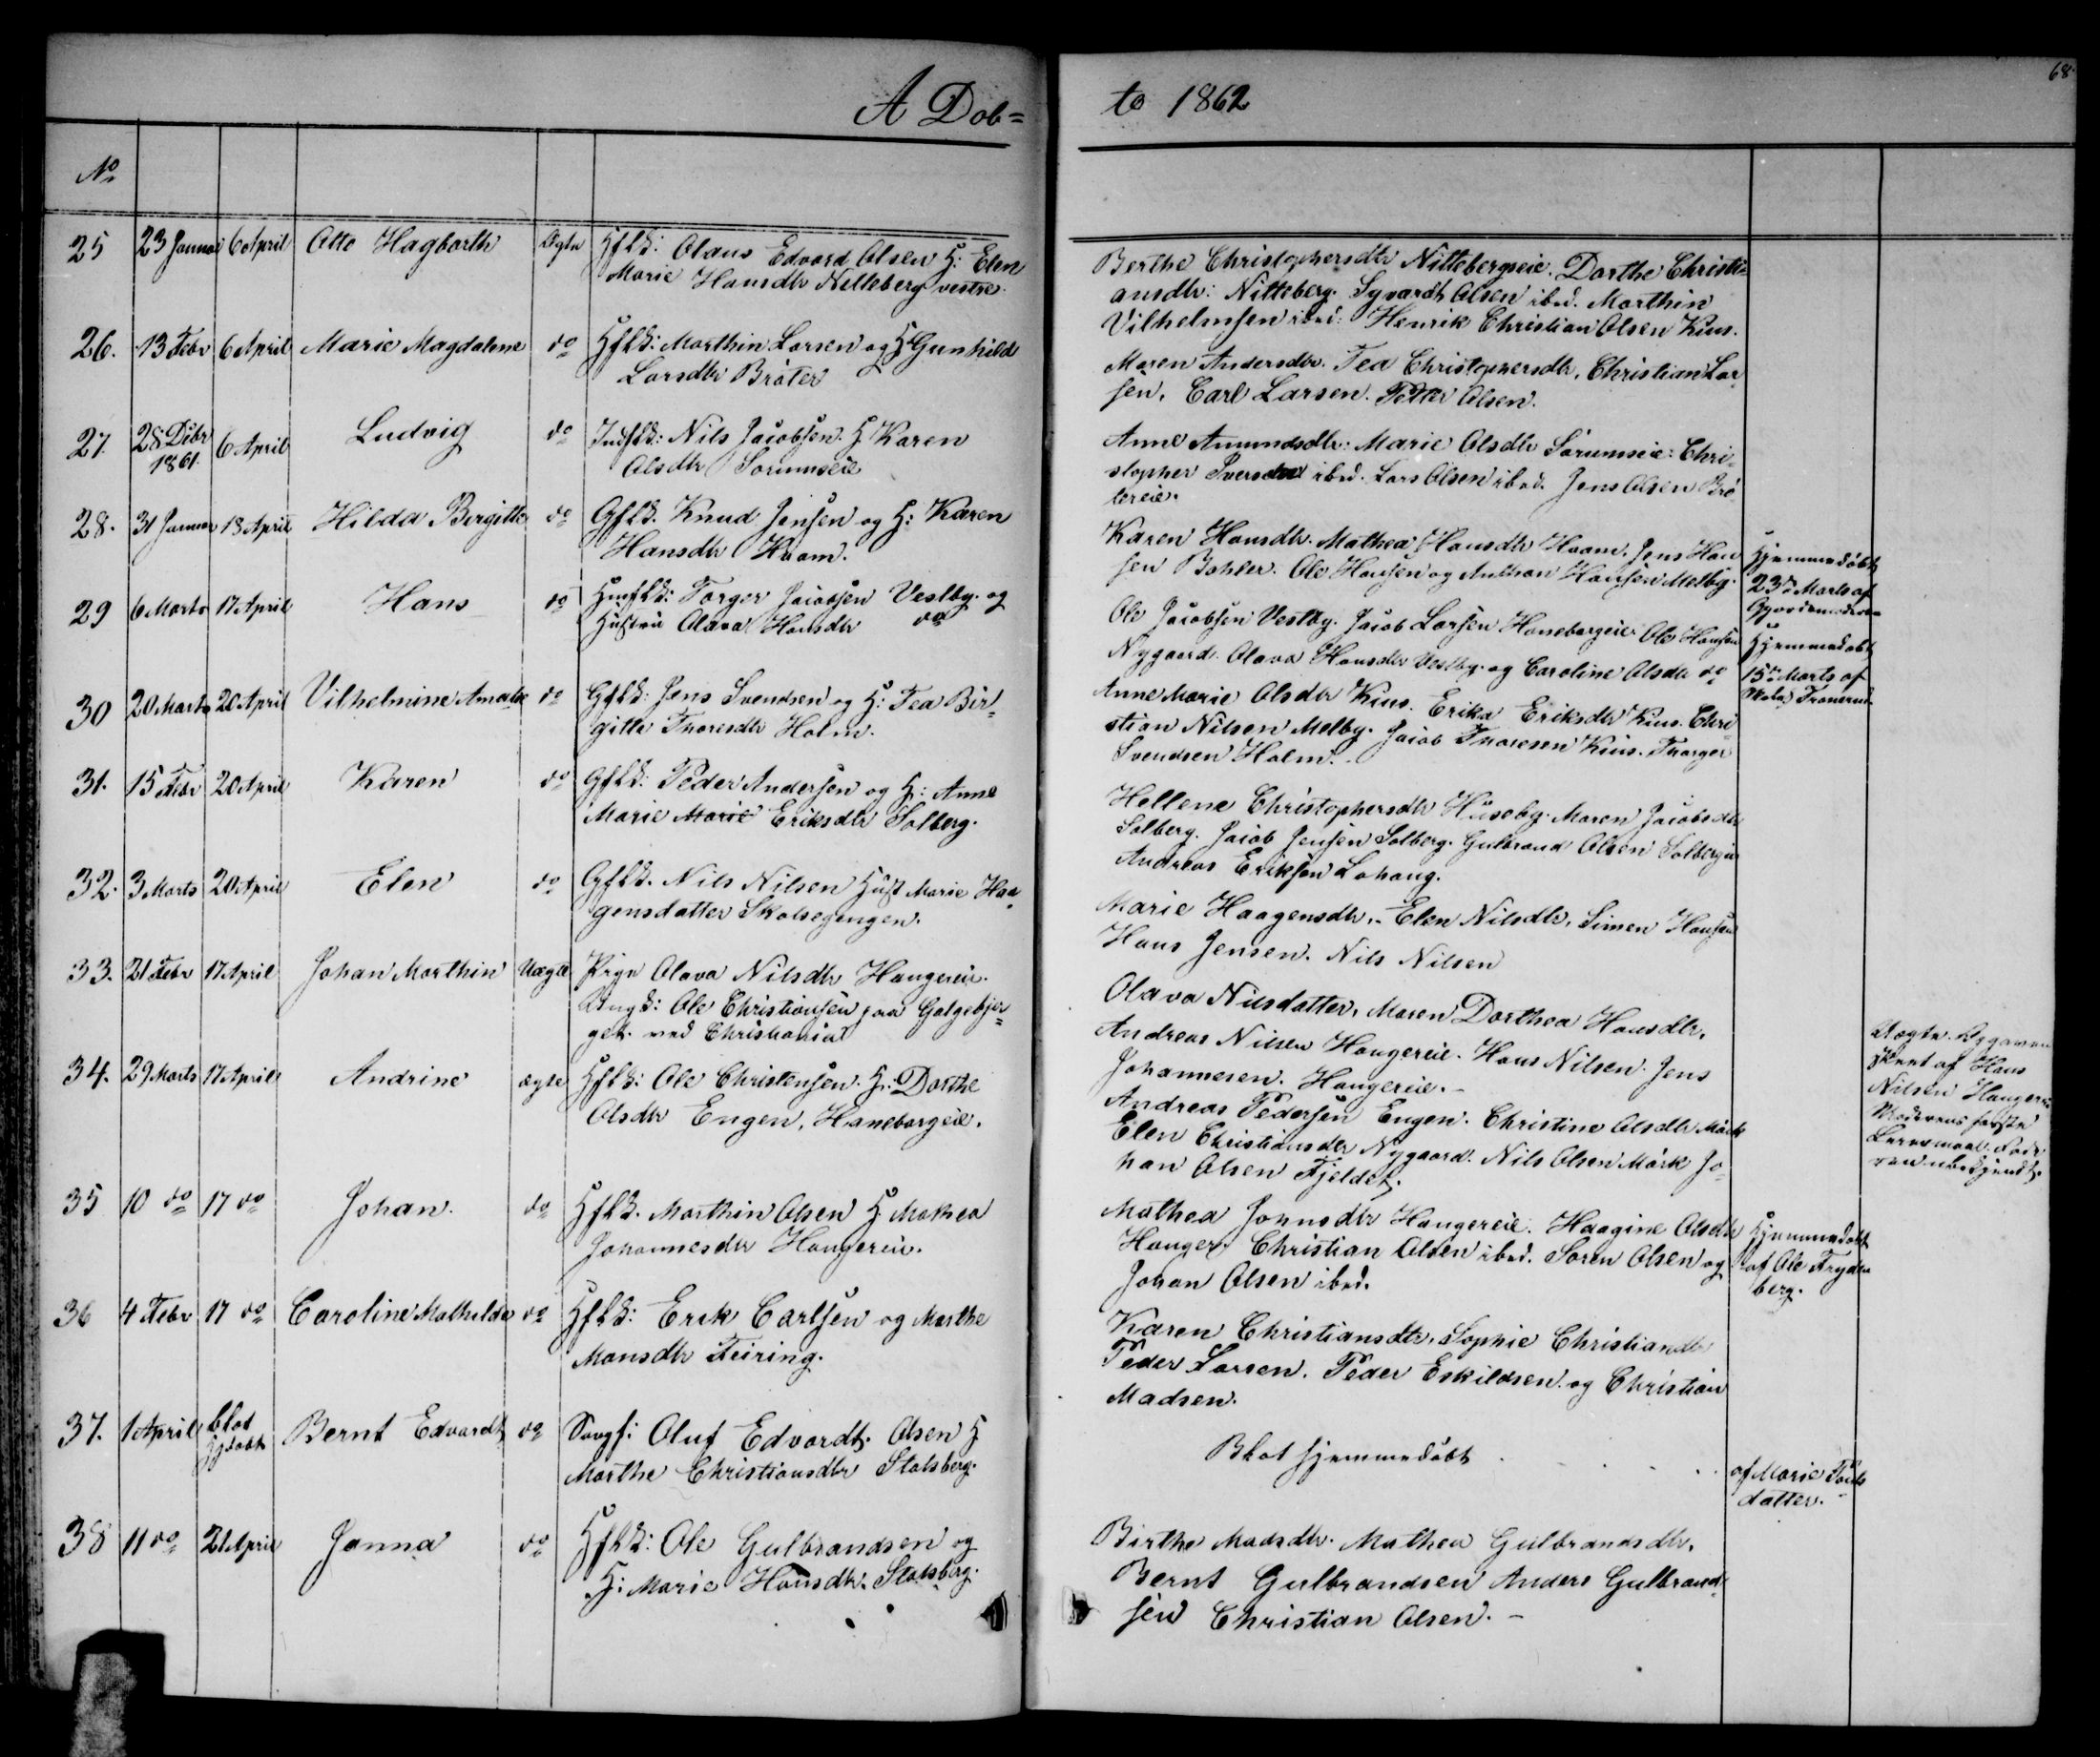 A Dob=
to 1862
68
No
25 23 Januar 6 April Otto Hagbarth Ægte Hfld: Olaus Edvard Olsen H: Elen
Marie Hansdtr Nitteberg vestre.
Berthe Christophersdtr Nittebergseie. Dorthe Christi=
ansdtr: Nitteberg. Syvardt Olsen ibid. Marthin
Vilhelmsen ibid: Henrik Christian Olsen Kius.
26. 13 Febr 6 April Marie Magdalene do Hfld: Marthin Larsen og H Gunhild
Larsdtr Bråter
Maren Andersdtr. Tea Christophersdtr, Christian Lar
sen, Carl Larsen. Petter Olsen.
27. 28 Dcbr 1861. 6 April Ludvig do Indfld: Nils Jacobsen. H Karen
Olsdtr Sørumseie
Anne Amundsdtr: Marie Olsdtr Sørumseie: Chri=
stopher Iversen ibid. Lars Olsen ibid. Jens Olsen Brå
tereie.
28. 31 Januar 13 April Hilda Birgitte do Gfld. Knud Jensen og H: Karen
Hansdtr Hvam.
Karen Hansdtr. Mathea Hansdtr Hvam. Jens Han
sen Bøhler. Ole Hansen og Anthon Hansen Melby.
Hjemmedøbt
23de Marts af
Gjordemoderen
29 6 Marts 17 April Hans do Hmfld: Torger Jacobsen Vestby. og
Hustru Olava Hansdtr do
Ole Jacobsen Vestby. Jacob Larsen Haneborgeie Ole Hansen
Nygaard. Olava Hansdtr Vestby. og Caroline Olsdtr do
Hjemmedøbt
15de Marts af
30 20 Marts 20 April Vilhelmine Amalie do Gfld: Jens Svendsen og H: Tea Bir=
gitte Thoresdtr Holm.
Anne Marie Olsdtr Kius. Erika Eriksdtr Kius. Chri
stian Nilsen Melby. Jacob Thoresen Kius. Thorger
Svendsen Holm.
31. 15 Febr 20 April Karen do Gfld: Peder Andersen og H: Anne
Marie Marie Eriksdtr Solberg.
Hellene Christophersdtr Huseby. Maren Jacobsdtr
Solberg. Jacob Jensen Solberg. Gulbrand Olsen Solbergeie
Andreas Eriksen Lohaug.
32. 3 Marts 20 April Elen do Gfld. Nils Nilsen Hust Marie Haa
gensdatter Skolsegengen.
Marie Haagensdtr. Elen Nilsdtr, Simen Hansen
Hans Jensen. Nils Nilsen
33. 21 Febr 17 April Johan Marthin Uægte Pige Olava Nilsdtr Haugereie.
Ungk: Ole Christiansen paa Galgebjer=
get ved Christiania
Olava Nilsdatter, Maren Dorthea Hansdtr,
Andreas Nilsen Haugereie. Hans Nilsen. Jens
Johannesen. Haugereie.
Uægte. Opgaven
skeet af Hans
Nilsen Haugereie
Moderens første
Leiermaal. Fade
ren ubekjendt.
34. 29 Marts 17 April Andrine ægte Hfld: Ole Christensen. H. Dorthe
Olsdtr Engen, Haneborgeie.
Andreas Pedersen Engen. Christine Olsdtr Mørk
Elen Christiansdtr Nygaard. Nils Olsen Mørk Jo=
han Olsen Fjeldet.
35 10 do 17 do Johan. do Hfld. Marthin Olsen H Mathea
Johannesdtr Haugereie.
Mathea Johnsdtr Haugereie. Haagine Olsdtr
Hauger. Christian Olsen ibid. Søren Olsen og
Johan Olsen ibid.
Hjemmedøbt
af Ole Fryden
berg.
36 4 Febr 17 do Caroline Mathilde do Hfld: Erik Carlsen og Marthe
Monsdtr Feiring.
Karen Christiansdtr. Sophie Christiandtr
Peder Larsen. Peder Eskildsen og Christian
Madsen.
37. 1 April blot Hjdøbt Bernt Edvardt do Saugf: Oluf Edvardt. Olsen H
Marthe Christiansdtr Stalsberg.
Blot hjemmedøbt
af Marie Pauls
datter.
38 11 do 21 April Janna do Hfld: Ole Gulbrandsen og
H: Marie Hansdtr. Stalsberg.
Birthe Madsdtr. Mathea Gulbrandsdtr.
Bernt Gulbrandsen Anders Gulbrand
sen Christian Olsen.